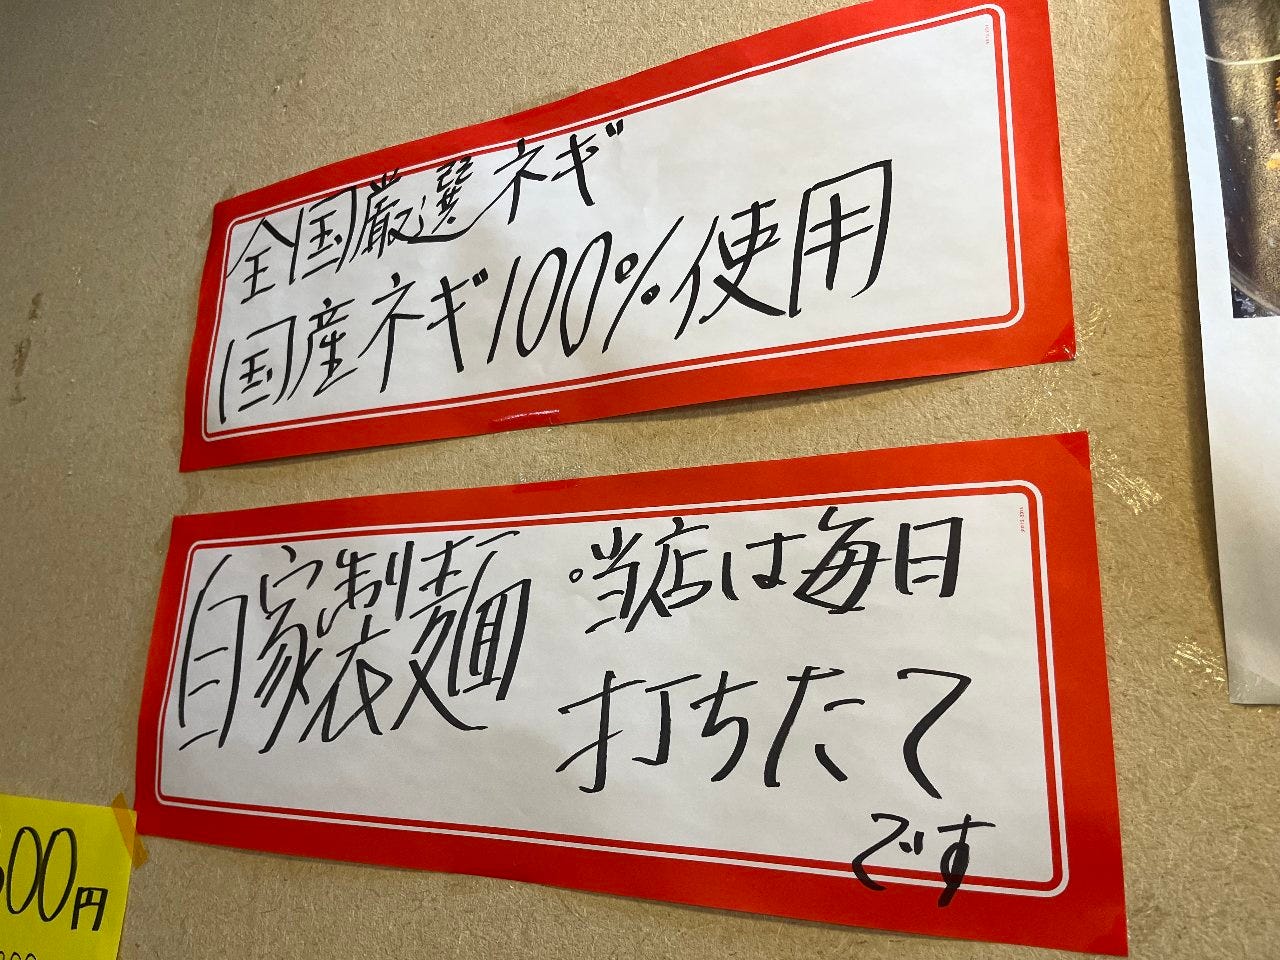 全国厳選ネギ
国産ネギ100%使用
自家製麺
当店は毎日
打ちたて
です
00円